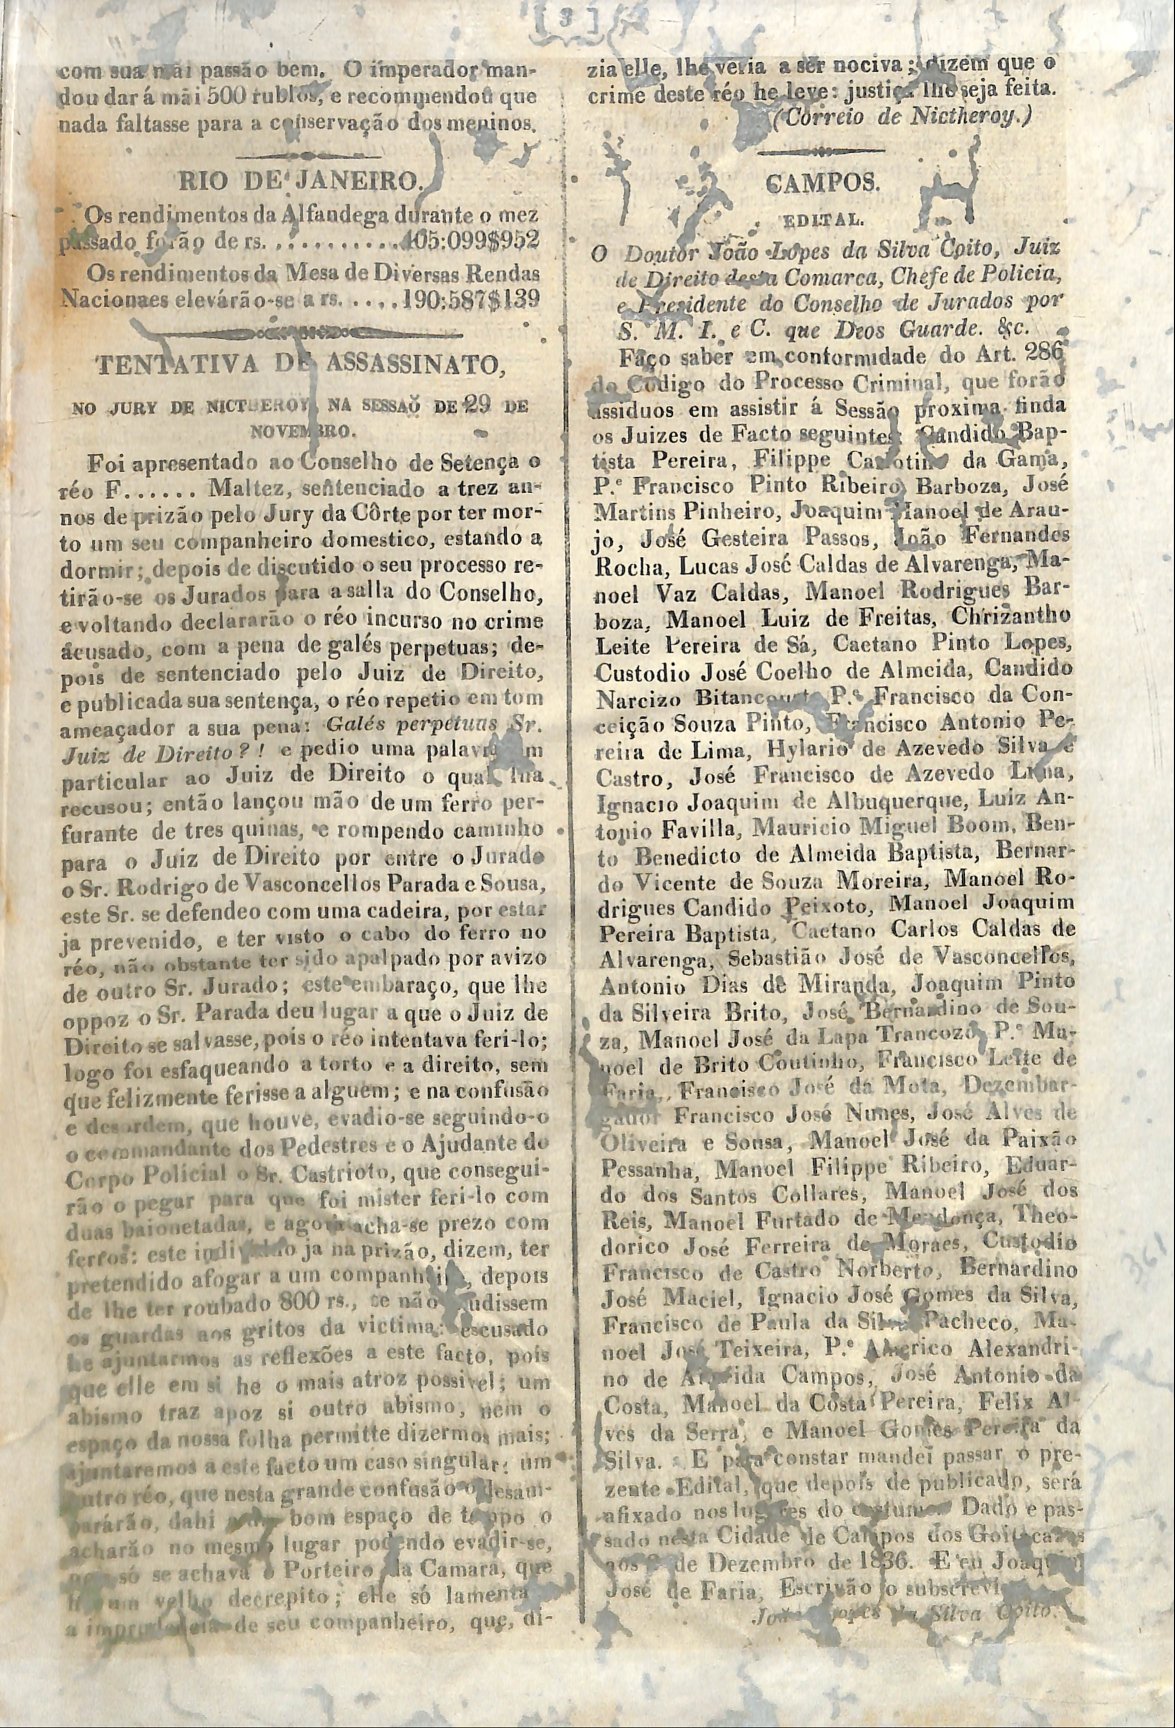 [ 3 ]
com sua mãi passão bem. O imperador man-
dou dar á mãi 500 rublos, e recommendou que
nada faltasse para a conservação dos meninos.
RIO DE JANEIRO.
Os rendimentos da Alfandega durante o mez
passado forão de rs. ...........405:099$952
Os rendimentos da Mesa de Diversas Rendas
Nacionaes elevárão-se a rs. ....190:587$139
TENTATIVA DE ASSASSINATO,
NO JURY DE NICTHEROY, NA SESSAÕ DE 29 DE
NOVEMBRO.
Foi apresentado ao Conselho de Setença o
réo F...... Maltez, sentenciado a trez an-
nos de prizão pelo Jury da Côrte por ter mor-
to um seu companheiro domestico, estando a
dormir; depois de discutido o seu processo re-
tirão-se os Jurados para a salla do Conselho,
e voltando declararão o réo incurso no crime
acusado, com a pena de galés perpetuas; de-
pois de sentenciado pelo Juiz de Direito,
e publicada sua sentença, o réo repetio em tom
ameaçador a sua pena: Galés perpetuas Sr.
Juiz de Direito?! e pedio uma palavra em
particular ao Juiz de Direito o qual lha
recusou; então lançou mão de um ferro per-
furante de tres quinas, e rompendo caminho
para o Juiz de Direito por entre o Jurado
o Sr. Rodrigo de Vasconcellos Parada e Sousa,
este Sr. se defendeo com uma cadeira, por estar
ja prevenido, e ter visto o cabo do ferro no
réo, não obstante ter sido apalpado por avizo
de outro Sr. Jurado; este embaraço, que lhe
oppoz o Sr. Parada deu lugar a que o Juiz de
Direito se salvasse, pois o réo intentava feri-lo;
logo foi esfaqueando a torto e a direito, sem
que felizmente ferisse a alguem; e na confusão
e desordem, que houve, evadio-se seguindo-o
o commandante dos Pedestres e o Ajudante do
Corpo Policial o Sr. Castrioto, que consegui-
rão o pegar para que foi mister feri-lo com
duas baionetadas, e agora acha-se prezo com
ferros: este individuo ja na prizão, dizem, ter
pretendido afogar a um companheiro, depois
de lhe ter roubado 800 rs., se não acudissem
os guardas aos gritos da victima: escusado
he ajuntarmos as reflexões a este facto, pois
que elle em si he o mais atroz possivel; um
abismo traz apoz si outro abismo, nem o
espaço da nossa folha permitte dizermos mais;
ajuntaremos a este facto um caso singular: um
outro réo, que nesta grande confusão o desam-
pararão, dahi a um bom espaço de tempo o
acharão no mesmo lugar podendo evadir-se,
pois só se achava o Porteiro da Camara, que
he um velho decrepito; elle só lamenta
a imprudencia de seu companheiro, que, di-
zia elle, lhe veria a ser nociva; dizem que o
crime deste réo he leve: justiça lhe seja feita.
(Correio de Nictheroy.)
CAMPOS.
EDITAL.
O Doutor João Lopes da Silva Coito, Juiz
de Direito desta Comarca, Chefe de Policia,
e Presidente do Conselho de Jurados por
S. M. I. e C. que Deos Guarde. &c.
Faço saber em conformidade do Art. 286
do Codigo do Processo Criminal, que forão
assiduos em assistir á Sessão proxima finda
os Juizes de Facto seguintes: Candido Bap-
tista Pereira, Filippe Carlotino da Gama,
P.e Francisco Pinto Ribeiro Barboza, José
Martins Pinheiro, Joaquim Manoel de Arau-
jo, José Gesteira Passos, João Fernandes
Rocha, Lucas José Caldas de Alvarenga, Ma-
noel Vaz Caldas, Manoel Rodrigues Bar-
boza, Manoel Luiz de Freitas, Chrizantho
Leite Pereira de Sá, Caetano Pinto Lopes,
Custodio José Coelho de Almeida, Candido
Narcizo Bitancourt, P.e Francisco da Con-
ceição Souza Pinto, Francisco Antonio Pe-
reira de Lima, Hylario de Azevedo Silva e
Castro, José Francisco de Azevedo Lima,
Ignacio Joaquim de Albuquerque, Luiz An-
tonio Favilla, Mauricio Miguel Boom, Ben-
to Benedicto de Almeida Baptista, Bernar-
do Vicente de Souza Moreira, Manoel Ro-
drigues Candido Peixoto, Manoel Joaquim
Pereira Baptista, Caetano Carlos Caldas de
Alvarenga, Sebastião José de Vasconcellos,
Antonio Dias de Miranda, Joaquim Pinto
da Silveira Brito, José Bernardino de Sou-
za, Manoel José da Lapa Trancozo, P.e Ma-
noel de Brito Coutinho, Francisco Leite de
Faria, Francisco José da Mota, Dezembar-
gador Francisco José Nunes, José Alves de
Oliveira e Sousa, Manoel José da Paixão
Pessanha, Manoel Filippe Ribeiro, Eduar-
do dos Santos Collares, Manoel José dos
Reis, Manoel Furtado de Mendonça, Theo-
dorico José Ferreira de Moraes, Custodio
Francisco de Castro Norberto, Bernardino
José Maciel, Ignacio José Gomes da Silva,
Francisco de Paula da Silva Pacheco, Ma-
noel José Teixeira, P.e Americo Alexandri-
no de Almeida Campos, José Antonio da
Costa, Manoel da Costa Pereira, Felix Al-
ves da Serra, e Manoel Gomes Pereira da
Silva. E para constar mandei passar o pre-
zente Edital, que depois de publicado, será
afixado nos lugares do costume. Dado e pas-
sado nesta Cidade de Campos dos Goitacazes
aos de Dezembro de 1836. E eu Joaquim
José de Faria, Escrivão o subscrevi.
João Lopes da Silva Coito.